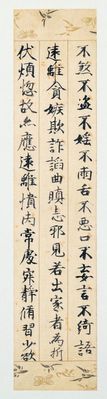 不煞不盗不婬不兩舌不悪口不妄言不綺語
遠離貪嫉欺詐諂曲瞋恚邪見若出家者為折
伏煩惱故亦應遠離憒閙常處寂静脩習少欲